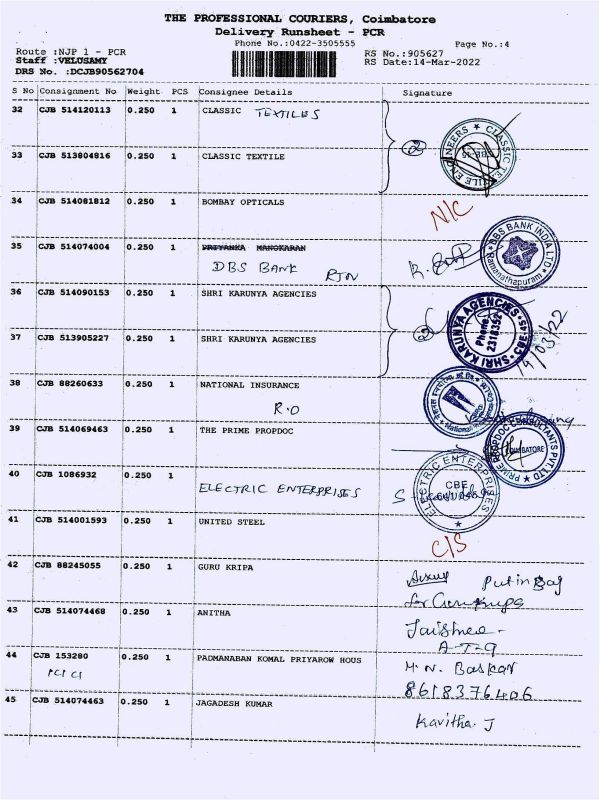 THE PROFESSIONAL COURIERS, Coimbatore
Delivery Runsheet - PCR
Phone No.:0422-3505555 Page No.:4
Route :NJP 1 - PCR RS No.:905627
Staff :VELUSAMY RS Date:14-Mar-2022
DRS No. :DCJB90562704
S No Consignment No Weight PCS Consignee Details Signature
32 CJB 514120113 0.250 1 CLASSIC TEXTILES
33 CJB 513804816 0.250 1 CLASSIC TEXTILE
2
CLASSIC TEXTILE ENGINEERS
34 CJB 514081812 0.250 1 BOMBAY OPTICALS N/C
35 CJB 514074004 0.250 1 PRIYANKA MANOKARAN
DBS BANK RTN
DBS BANK INDIA LTD
Ramanathapuram
36 CJB 514090153 0.250 1 SHRI KARUNYA AGENCIES
37 CJB 513905227 0.250 1 SHRI KARUNYA AGENCIES
2
SHRI KARUNYA AGENCIES
Phone
2318352
CBE-45
14/03/22
38 CJB 88260633 0.250 1 NATIONAL INSURANCE
R.O
39 CJB 514069463 0.250 1 THE PRIME PROPDOC
PRIME PROPDOC CONSULTANTS PVT LTD
COIMBATORE
40 CJB 1086932 0.250 1
ELECTRIC ENTERPRISES
ELECTRIC ENTERPRISES
CBE
41 CJB 514001593 0.250 1 UNITED STEEL C/S
42 CJB 88245055 0.250 1 GURU KRIPA
Put in Bag
for Gurukripa
43 CJB 514074468 0.250 1 ANITHA
Jaishree -
A-T-9
44 CJB 153280 0.250 1 PADMANABAN KOMAL PRIYAROW HOUS
M. N. Baskar
8618376406
45 CJB 514074463 0.250 1 JAGADESH KUMAR
Kavitha. J